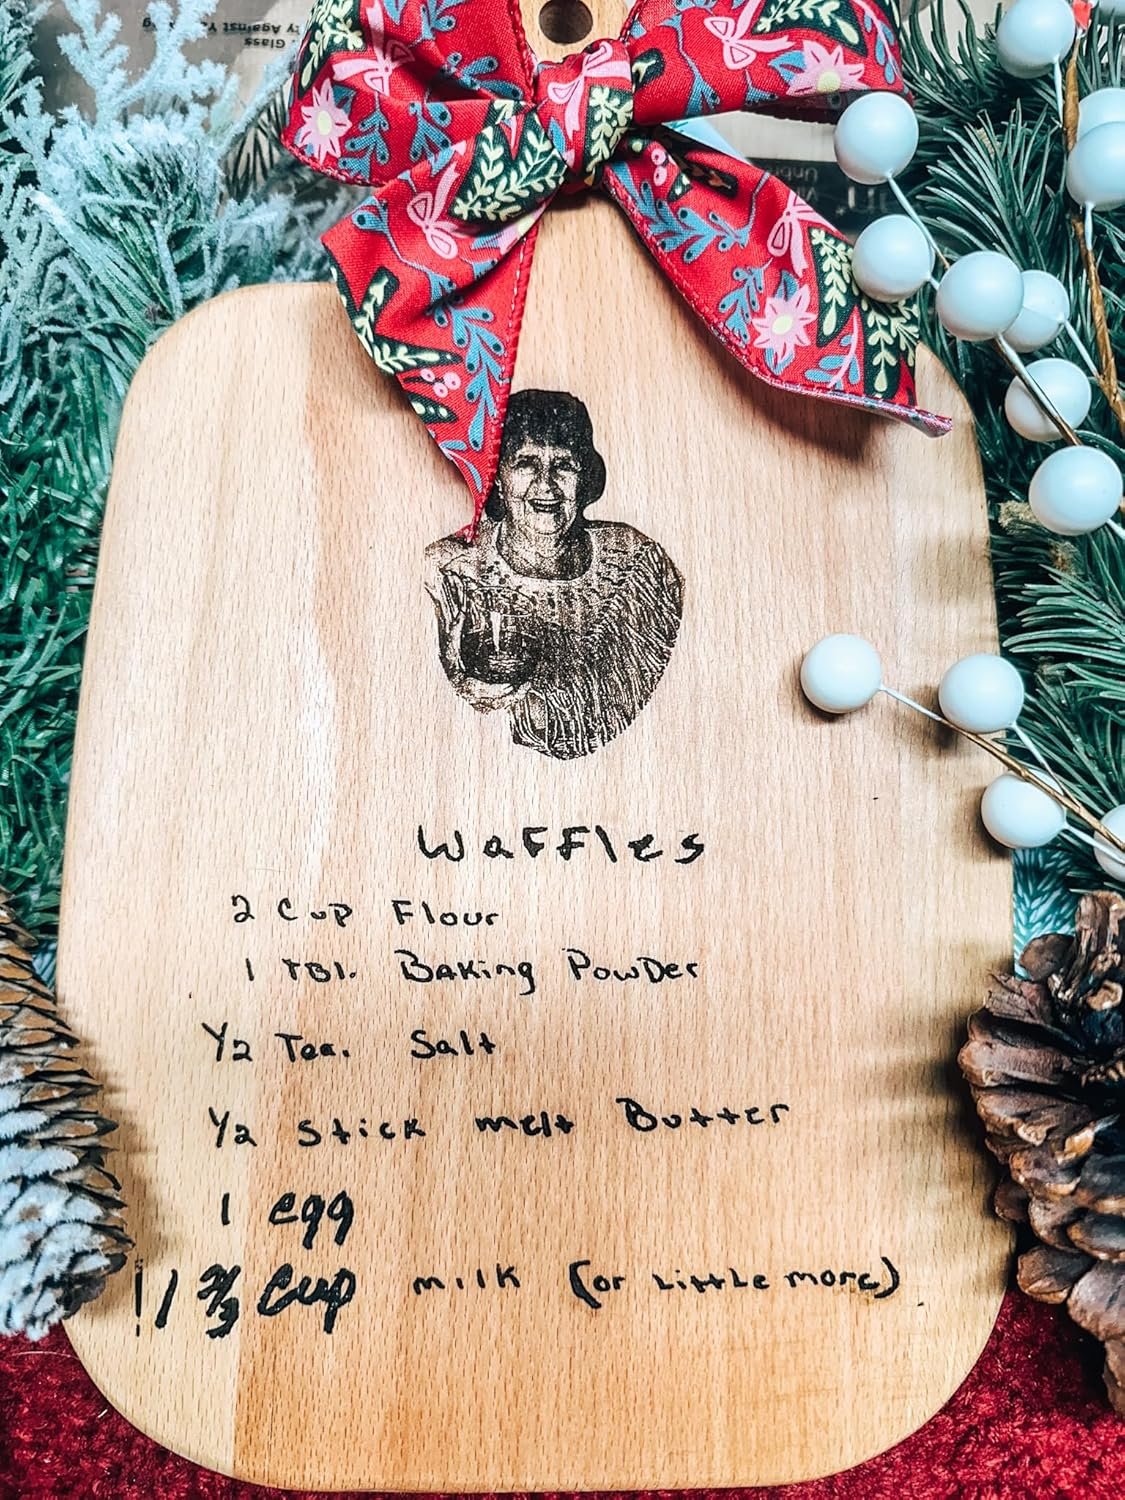 Glass
y Against Ya
ng
Vi
Unb
Waffles
2 Cup Flour
1 TBl. Baking PowDer
1/2 Tea. Salt
1/2 Stick melt Butter
1 egg
1 2/3 Cup milk (or Little more)